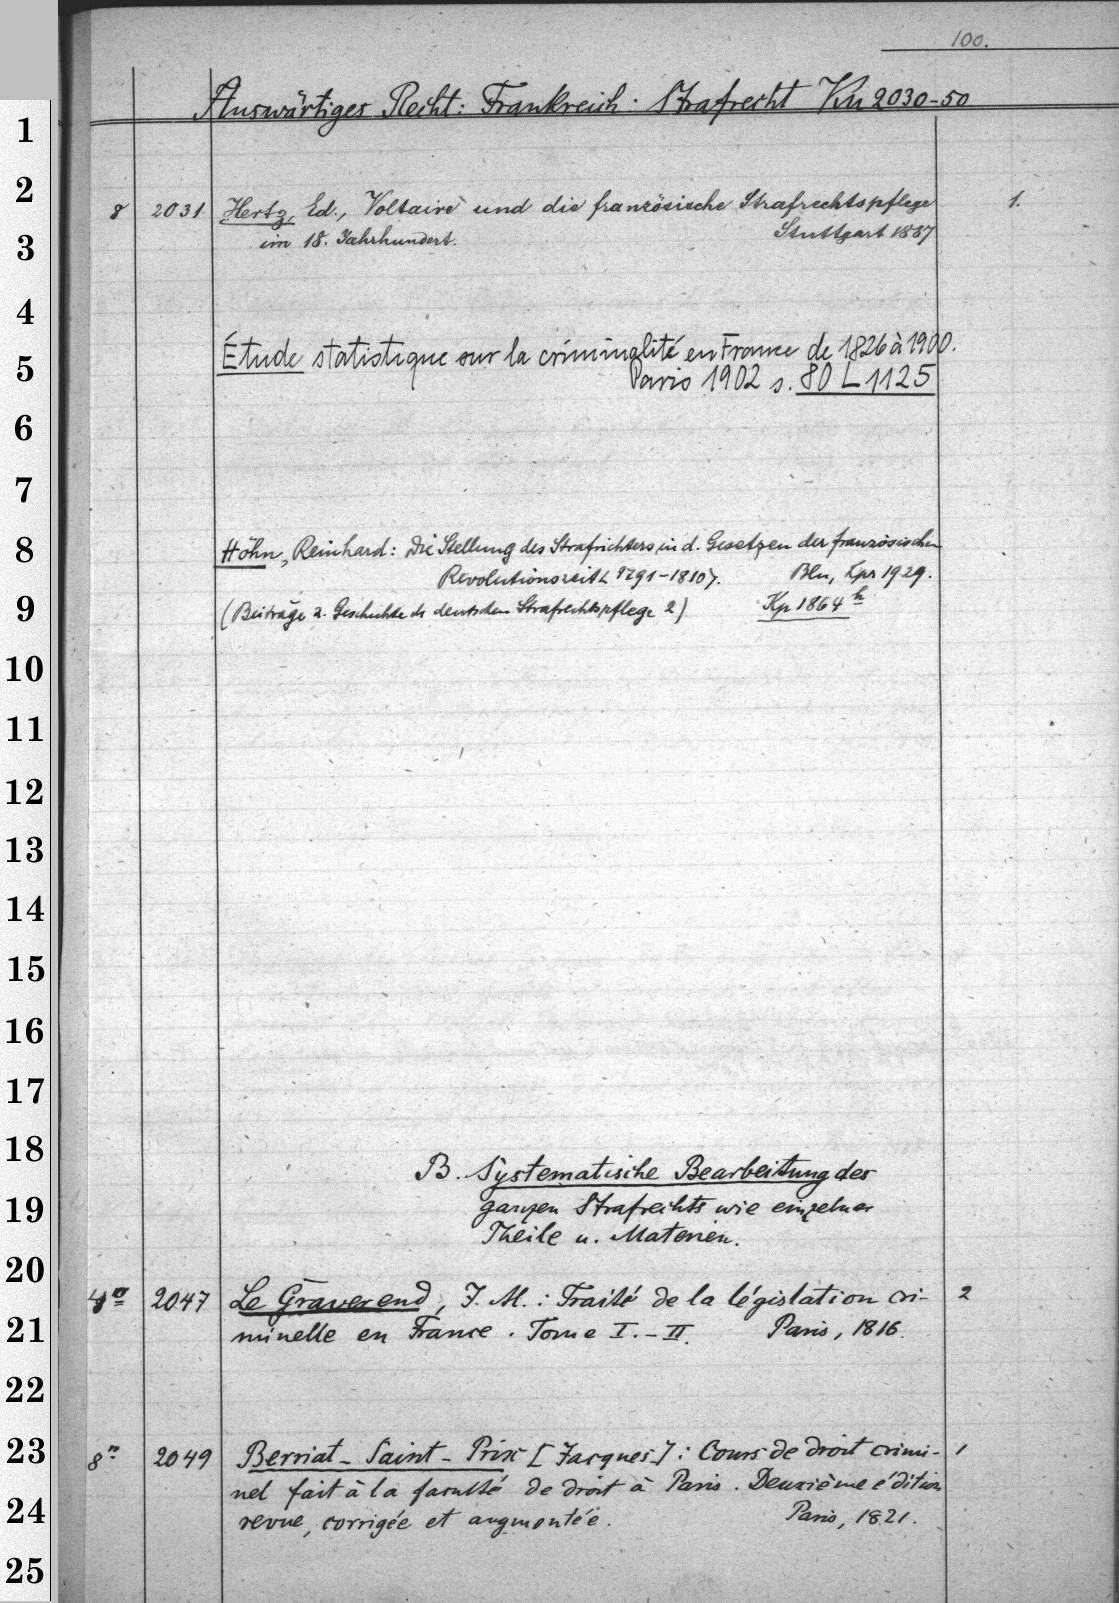 1
2
3
4
5
6
7
8
9
10
11
12
13
14
15
16
17
18
19
20
21
22
23
24
25
100.
Auswärtiges Recht: Frankreich: Strafrecht Kn 2030-50
8 2031 Hertz, Ed., Voltaire und die französische Strafrechtspflege 1.
im 18. Jahrhundert. Stuttgart 1887
Étude statistique sur la criminalité en France de 1826 à 1900.
Paris 1902 s. 80 L 1125
Höhn, Reinhard: Die Stellung des Strafrichters in d. Gesetzen der französischen
Revolutionszeit <1791-1810>. Bln, Lpz 1929.
(Beiträge z. Geschichte d. deutschen Strafrechtspflege 2) Kp 1864 h
B. Systematische Bearbeitung des
ganzen Strafrechts wie einzelner
Theile u. Materien.
2047 Le Graverend, J. M.: Traité de la législation cri- 2
minelle en France. Tome I.-II. Paris, 1816.
8º 2049 Berriat-Saint-Prix [Jacques]: Cours de droit crimi- 1
nel fait à la faculté de droit à Paris. Deuxième édition
revue, corrigée et augmentée. Paris, 1821.